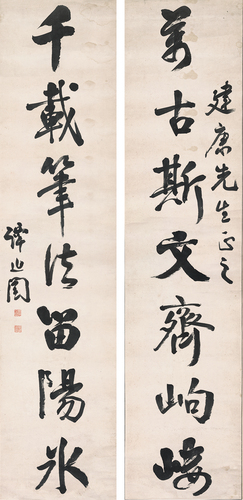 萬古斯文齊岣嶁
建康先生正之
千載筆法留陽冰
譚延闓